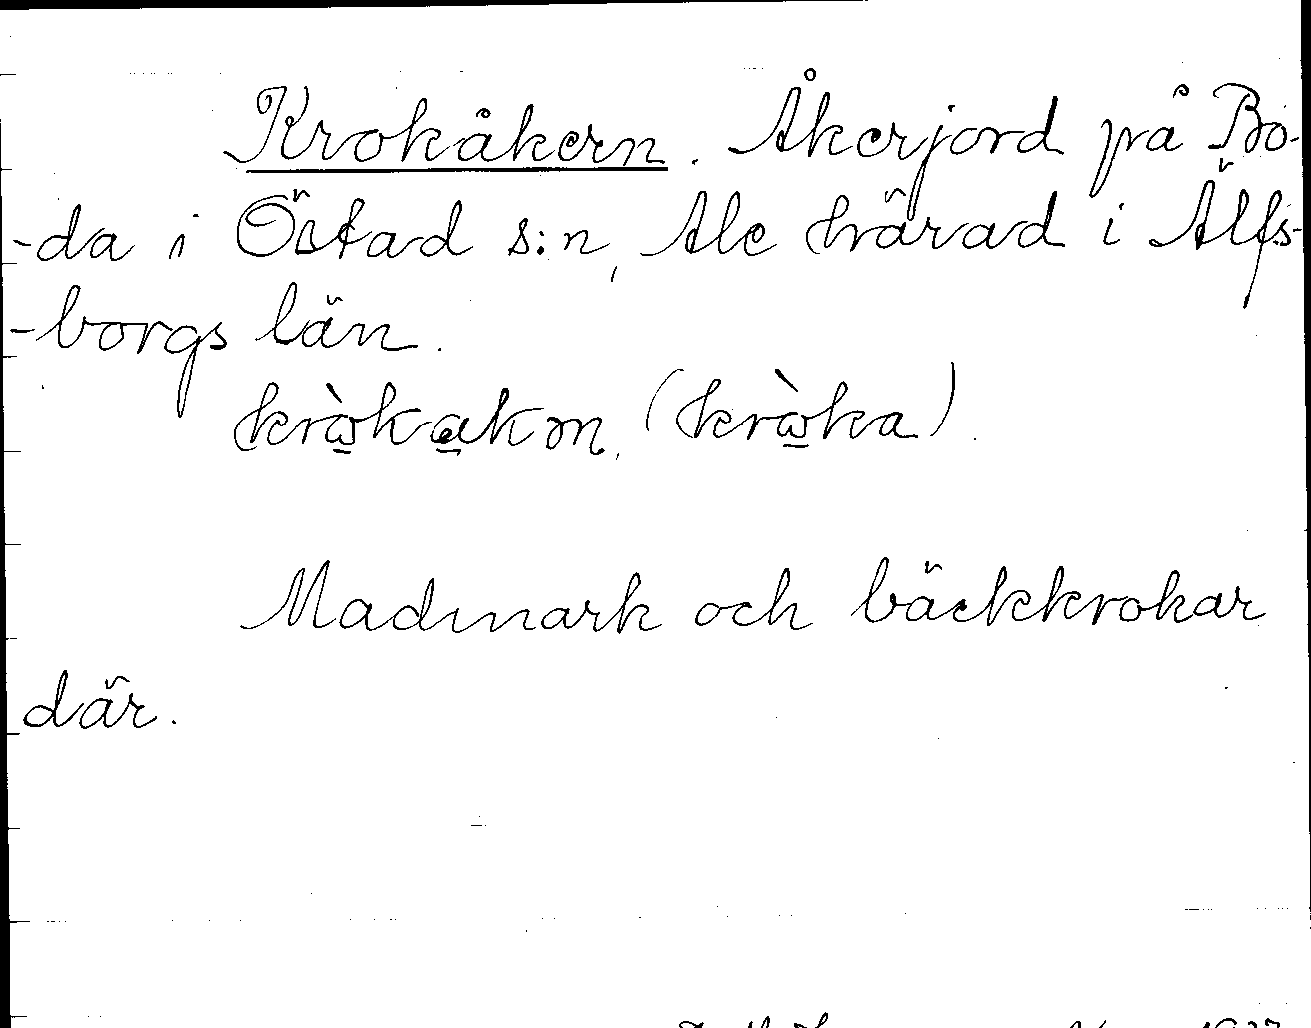 Krokåkern. Åkerjord på Bo-
-da i Östad s:n, Ale härad i Älfs-
-borgs län.
Madmark och bäckkrokar
där.